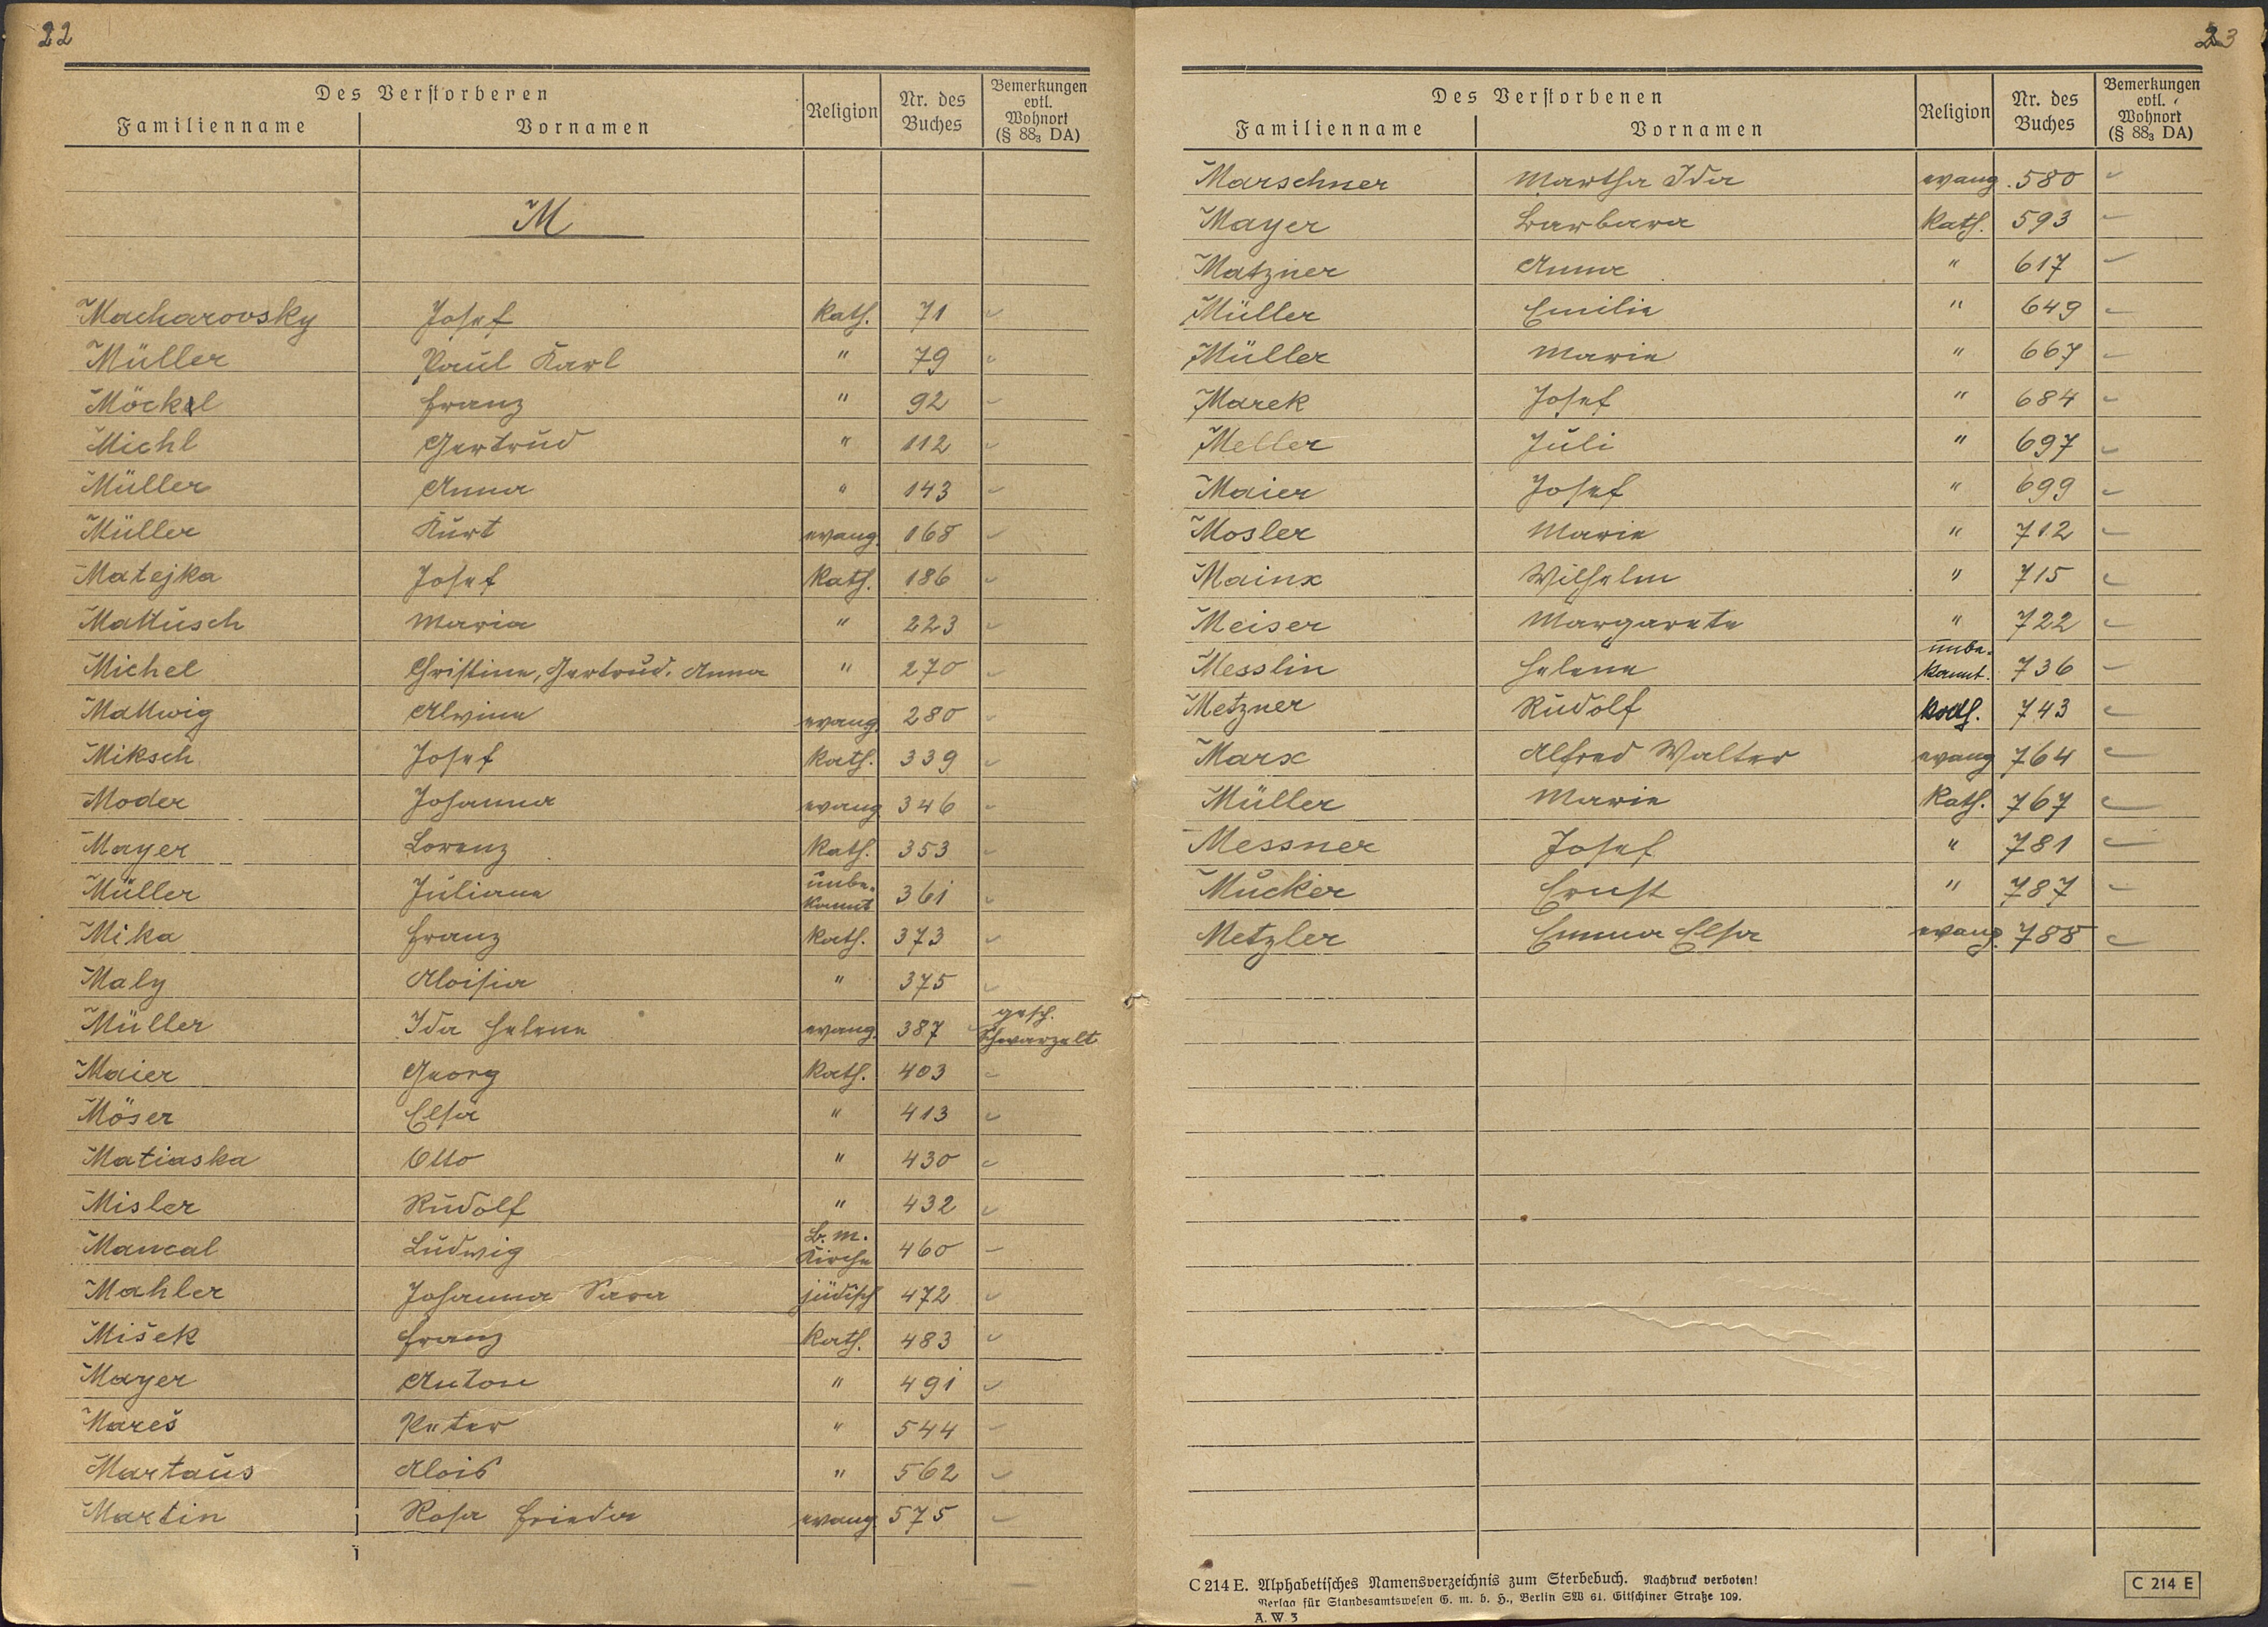 22
Des Verstorbenen
Familienname Vornamen Religion Nr. des Buches Bemerkungen evtl. Wohnort (§ 88₃ DA)
M
Macharovsky Josef kath. 71
Müller Paul Karl " 79
Möckel Franz " 92
Michl Gertrud " 112
Müller Anna " 143
Müller Kurt evang. 168
Matejka Josef kath. 186
Mattusch Maria " 223
Michel Christine, Gertrud. Anna " 270
Mattwig Alwine evang. 280
Miksch Josef kath. 339
Moder Johanna evang 346
Mayer Lorenz kath. 353
Müller Juliane unbe-kannt 361
Mika Franz kath. 373
Maly Aloisia " 375
Müller Ida Helene evang. 387 gesch. Schwarzelt
Maier Georg kath. 403
Möser Elsa " 413
Matiaska Otto " 430
Misler Rudolf " 432
Mancal Ludwig B. m. Kirche 460
Mahler Johanna Sara jüdisch 472
Mišek Franz kath. 483
Mayer Anton " 491
Mareš Peter " 544
Martaus Alois " 562
Martin Rosa Frieda evang. 575
23
Des Verstorbenen
Familienname Vornamen Religion Nr. des Buches Bemerkungen evtl. Wohnort (§ 88₃ DA)
Marschner Martha Ida evang. 580
Mayer Barbara kath. 593
Matzner Anna " 617
Müller Emilie " 649
Müller Marie " 667
Marek Josef " 684
Meller Juli " 697
Maier Josef " 699
Mosler Marie " 712
Mainx Wilhelm " 715
Meiser Margarete " 722
Messlin Helene unbe-kannt. 736
Metzner Rudolf kath. 743
Marx Alfred Walter evang 764
Müller Marie kath. 767
Messner Josef " 781
Mucker Ernst " 787
Metzler Emma Elsa evang. 788
C 214 E. Alphabetisches Namensverzeichnis zum Sterbebuch. Nachdruck verboten!
Verlag für Standesamtswesen G. m. b. H., Berlin SW 61. Gitschiner Straße 109.
A. W. 3
C 214 E